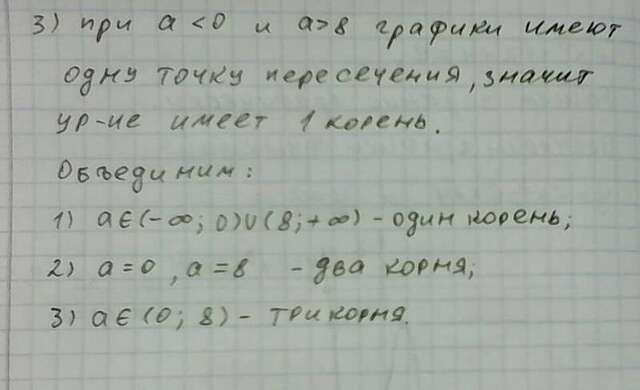 3) при a < 0 и a > 8 графики имеют
одну точку пересечения, значит
ур-ие имеет 1 корень.
Объединим:
1) a∈(-∞; 0)∪(8; +∞) - один корень;
2) a = 0, a = 8 - два корня;
3) a∈(0; 8) - три корня.